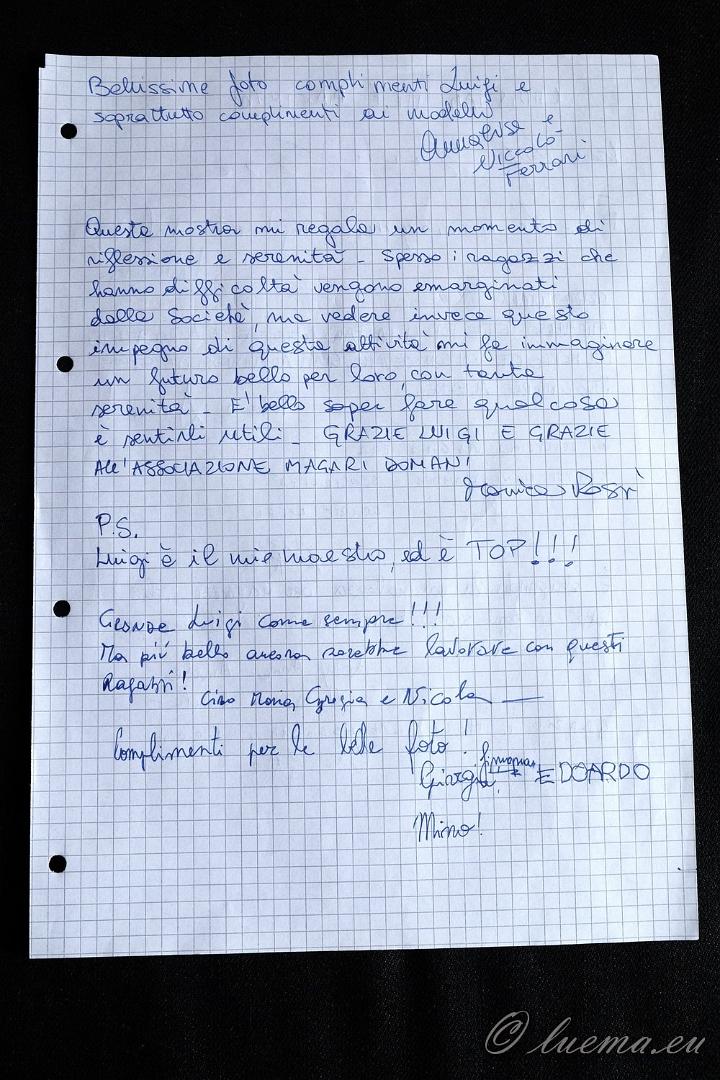 Bellissime foto complimenti Luigi e
soprattutto complimenti ai modelli
Annalisa e
Niccolò
Ferrari
Questa mostra mi regala un momento di
riflessione e serenità - Spesso i ragazzi che
hanno difficoltà vengono emarginati
dalla Società, ma vedere invece questo
impegno di questa attività mi fa immaginare
un futuro bello per loro, con tanta
serenità - E' bello saper fare qualcosa
è sentirli utili - GRAZIE LUIGI E GRAZIE
All'ASSOCIAZIONE MAGARI DOMANI
Monica Rossi
P.S.
Luigi è il mio maestro, ed è TOP!!!
Grande Luigi come sempre!!!
Ma più bello ancora sarebbe lavorare con questi
Ragazzi!
Ciao Grazia e Nicola
Complimenti per le belle foto!
Giorgia, EDOARDO
Mino!
© luema.eu